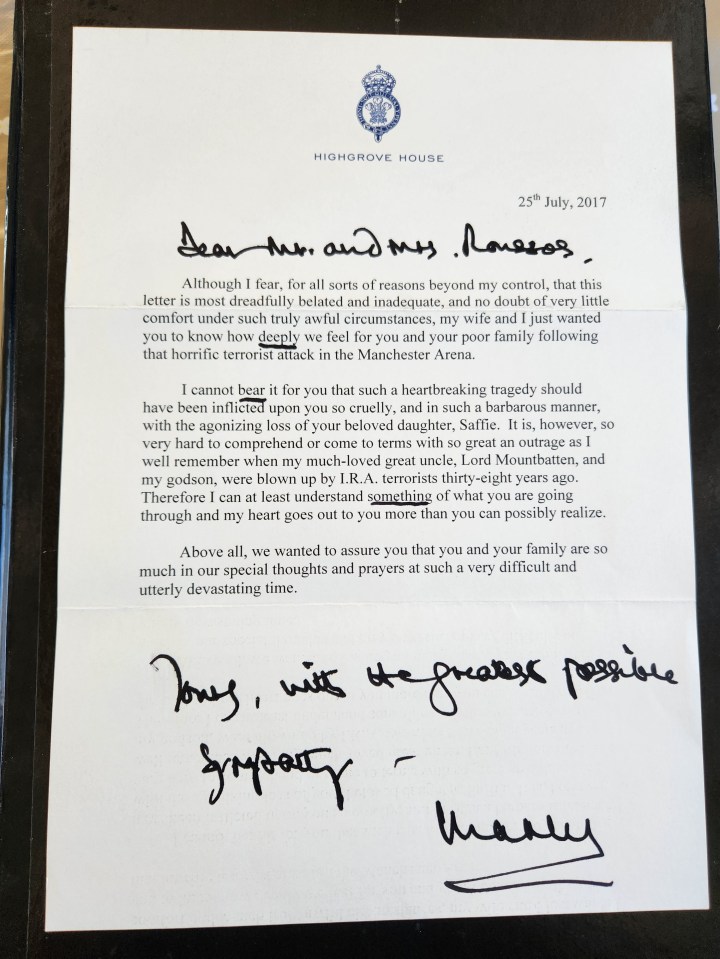 HIGHGROVE HOUSE
25th July, 2017
Dear Mr. and Mrs. Roussos,
Although I fear, for all sorts of reasons beyond my control, that this
letter is most dreadfully belated and inadequate, and no doubt of very little
comfort under such truly awful circumstances, my wife and I just wanted
you to know how deeply we feel for you and your poor family following
that horrific terrorist attack in the Manchester Arena.
I cannot bear it for you that such a heartbreaking tragedy should
have been inflicted upon you so cruelly, and in such a barbarous manner,
with the agonizing loss of your beloved daughter, Saffie. It is, however, so
very hard to comprehend or come to terms with so great an outrage as I
well remember when my much-loved great uncle, Lord Mountbatten, and
my godson, were blown up by I.R.A. terrorists thirty-eight years ago.
Therefore I can at least understand something of what you are going
through and my heart goes out to you more than you can possibly realize.
Above all, we wanted to assure you that you and your family are so
much in our special thoughts and prayers at such a very difficult and
utterly devastating time.
Yours, with the greatest possible
sympathy –
Charles